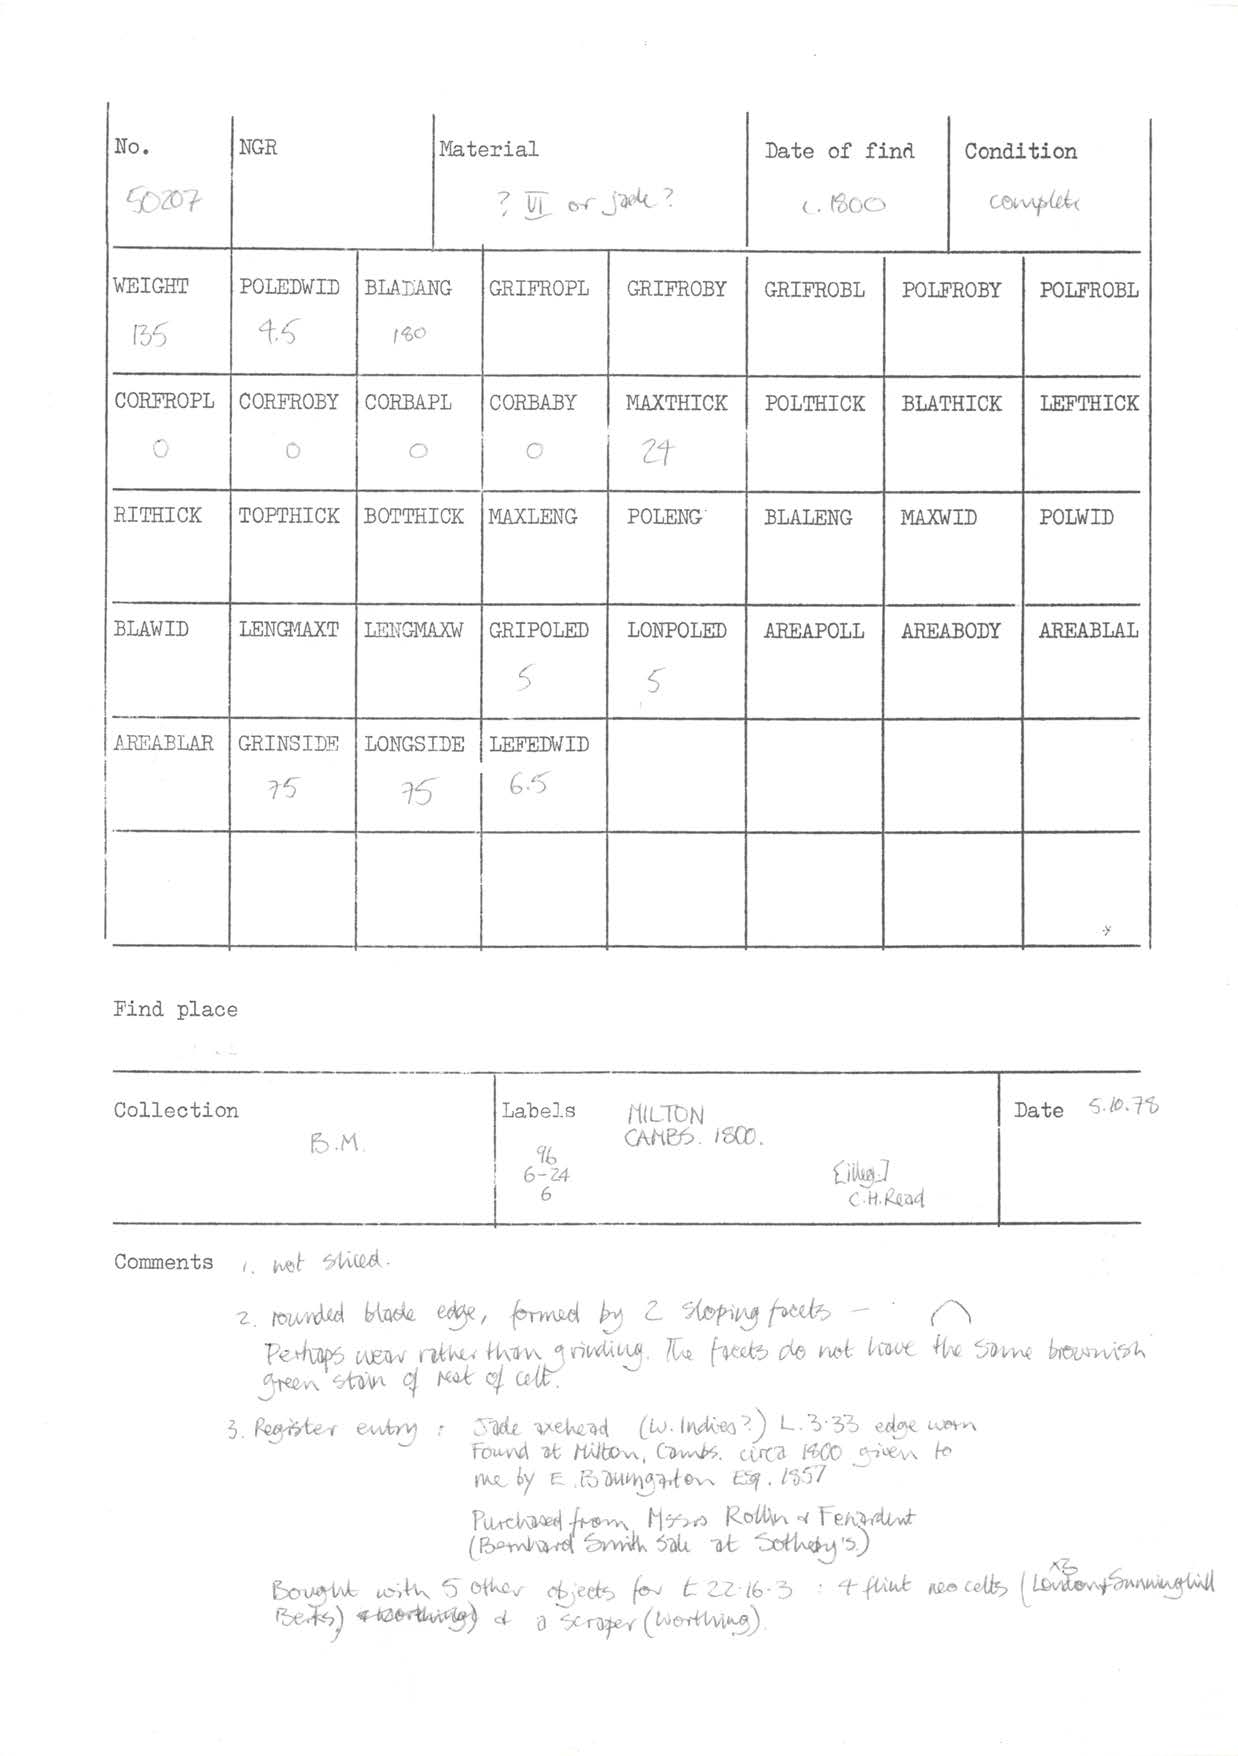 No. NGR Material Date of find Condition
50207 ? VI or jade? c. 1800 complete
WEIGHT POLEDWID BLADANG GRIFROPL GRIFROBY GRIFROBL POLFROBY POLFROBL
135 4.5 180
CORFROPL CORFROBY CORBAPL CORBABY MAXTHICK POLTHICK BLATHICK LEFTHICK
0 0 0 0 24
RITHICK TOPTHICK BOTTHICK MAXLENG POLENG BLALENG MAXWID POLWID
BLAWID LENGMAXT LENGMAXW GRIPOLED LONPOLED AREAPOLL AREABODY AREABLAL
5 5
AREABLAR GRINSIDE LONGSIDE LEFEDWID
75 75 6.5
Find place
Collection Labels MILTON Date 5.10.78
B.M. CAMBS. 1800.
96
6-24 [illeg.]
6 C.H.Read
Comments 1. not sliced.
2. rounded blade edge, formed by 2 sloping facets –
Perhaps wear rather than grinding. The facets do not have the same brownish
green stain of rest of celt.
3. Register entry : Jade axehead (W. Indies?) L. 3.33 edge worn
Found at Milton, Cambs. circa 1800 given to
me by E. Baumgarton Esq. 1857
Purchased from Mssrs Rollin & Feuardent
(Bernhard Smith Sale at Sotheby's.)
x3
Bought with 5 other objects for £22.16.3 : 4 flint neo celts (London + Sunninghill
Berks) + Worthing) & a scraper (Worthing).